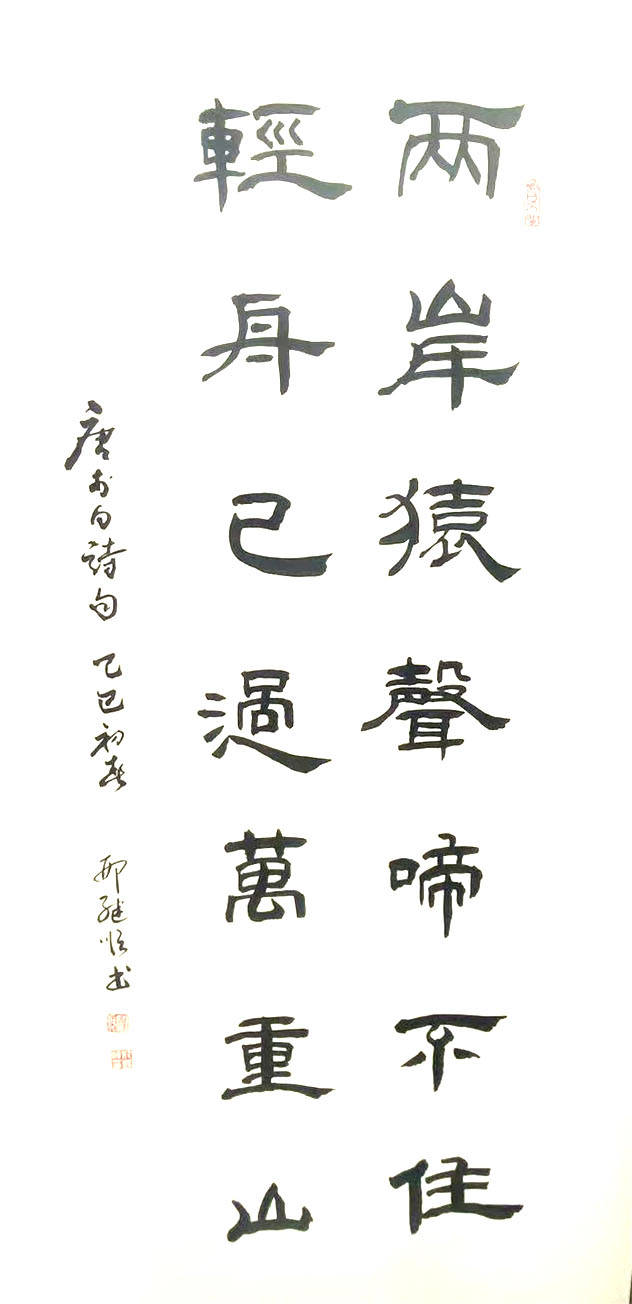 两岸猿聲啼不住
輕舟已過萬重山
唐李白詩句 乙巳初春 邢继顺书